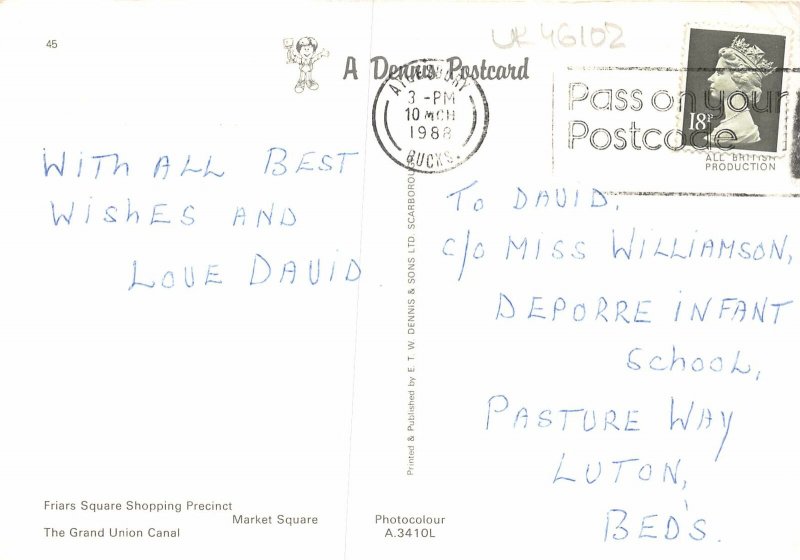 45
UK46102
A Dennis Postcard
AYLESBURY
3 - PM
10 MCH
1988
BUCKS.
Pass on your
Postcode
18P
ALL BRITISH
PRODUCTION
WITH ALL BEST
WISHES AND
LOVE DAVID
Printed & Published by E. T. W. DENNIS & SONS LTD. SCARBOROUGH
TO DAVID.
C/O MISS WILLIAMSON,
DEPORRE INFANT
SCHOOL,
PASTURE WAY
LUTON,
BED'S.
Friars Square Shopping Precinct
Market Square
The Grand Union Canal
Photocolour
A.3410L